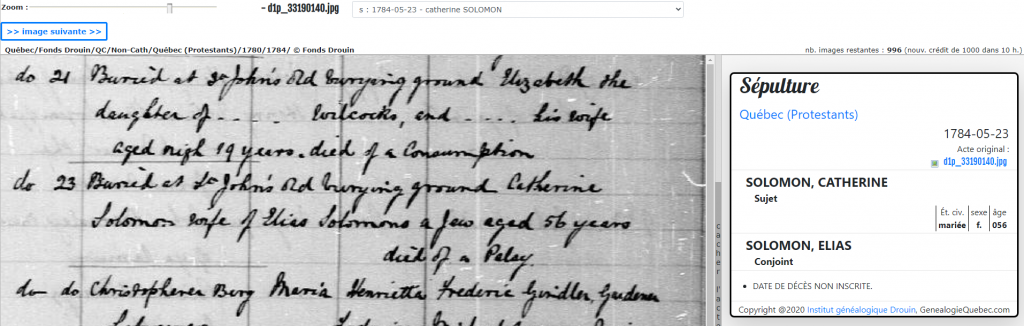 Zoom :
– d1p_33190140.jpg
s : 1784-05-23 - catherine SOLOMON
>> image suivante >>
Québec/Fonds Drouin/QC/Non-Cath/Québec (Protestants)/1780/1784/ © Fonds Drouin
nb. images restantes : 996 (nouv. crédit de 1000 dans 10 h.)
do 21 Buried at St John's Old burying ground Elizabeth the
daughter of - - . . Wilcocks, and - . . . his wife
aged nigh 19 years. died of a Consumption
do 23 Buried at St John's Old burying ground Catherine
Solomon wife of Elias Solomons a Jew aged 56 years
died of a Palsy
do do Christopherea Berg Maria Henrietta Frederic Gindler, Gardener
Sépulture
Québec (Protestants)
1784-05-23
Acte original :
d1p_33190140.jpg
SOLOMON, CATHERINE
Sujet
Ét. civ. sexe âge
mariée f. 056
SOLOMON, ELIAS
Conjoint
• DATE DE DÉCÈS NON INSCRITE.
Copyright @2020 Institut généalogique Drouin, GenealogieQuebec.com